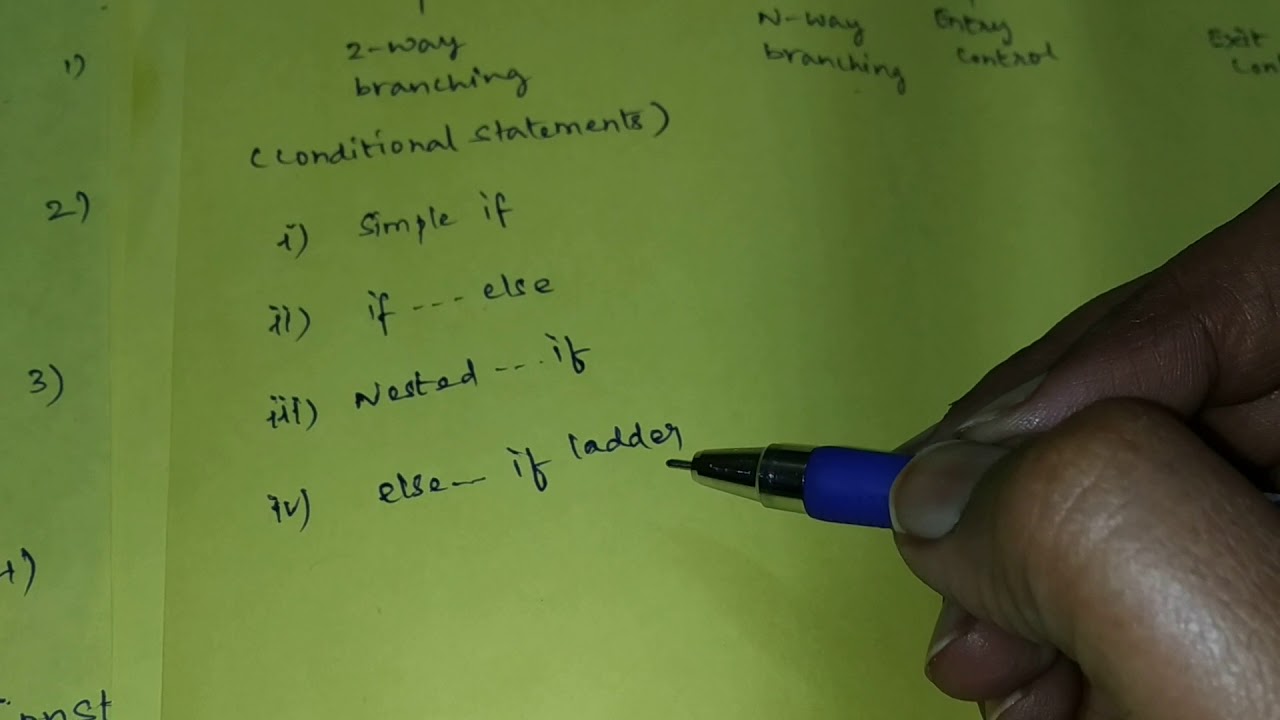 1)
2-way
branching
N-way
branching
Entry
control
Exit
(conditional statements)
2)
i) simple if
ii) if --- else
3)
iii) Nested --- if
iv) else-- if ladder